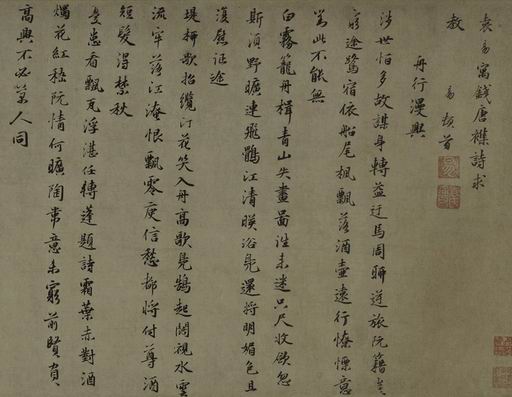 袁易寓錢唐襍詩求
教
易頓首
舟行漫興
涉世怕多故謀身轉益迂馬周聊逆旅阮籍豈
窮途鷺宿依船尾楓飄落酒壺遠行憭慄意
對此不能無
白霧籠舟楫青山失畫圖洼未迷只尺收欲忽
斯須野曠連飛鸛江清暎浴鳧還將明媚色且
復慰征途
堤柳歌抬纜汀花笑入舟高歌鳧鵠起闊視水雲
流牢落江淹恨飄零庾信愁都將付尊酒
短髮得禁秋
患看飄瓦浮湛任轉蓬題詩霜葉赤對酒
燭花紅嵇阮情何曠陶韋意未窮前賢負
高興不必算人同